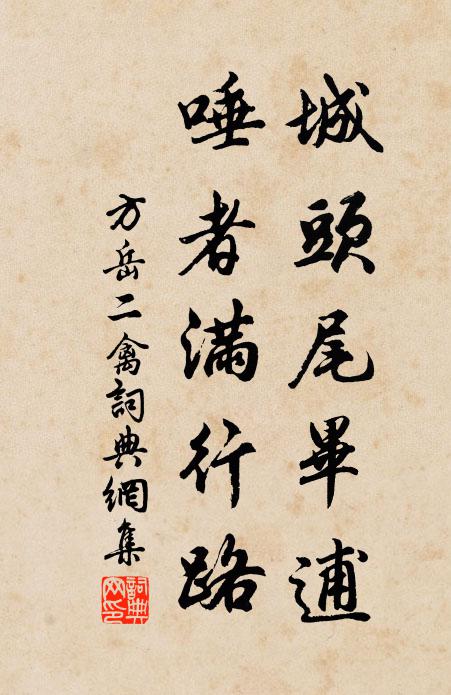 城頭尾畢逋
唾者滿行路
方岳二禽詞典網集
詞典網印